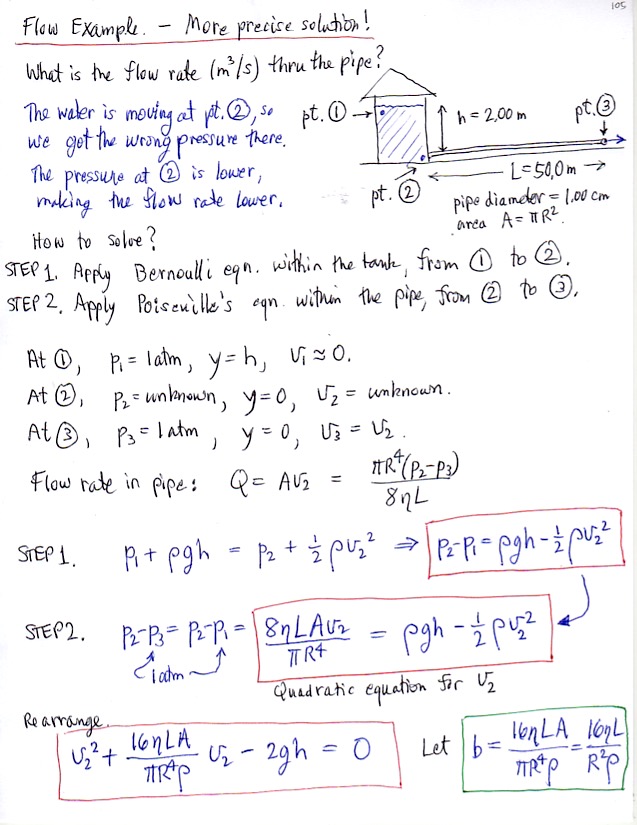 105
Flow Example. — More precise solution!
What is the flow rate (m³/s) thru the pipe?
The water is moving at pt. ②, so
we got the wrong pressure there.
The pressure at ② is lower,
making the flow rate lower.
pt. ①
h = 2.00 m
pt. ③
L = 50.0 m
pt. ②
pipe diameter = 1.00 cm
area A = πR².
How to solve?
STEP 1. Apply Bernoulli eqn. within the tank, from ① to ②.
STEP 2. Apply Poiseuille's eqn. within the pipe, from ② to ③.
At ①, p₁ = 1 atm, y = h, v₁ ≈ 0.
At ②, p₂ = unknown, y = 0, v₂ = unknown.
At ③, p₃ = 1 atm, y = 0, v₃ = v₂.
Flow rate in pipe: Q = Av₂ = πR⁴(p₂-p₃) / 8ηL
STEP 1. p₁ + ρgh = p₂ + ½ρv₂² ⇒ p₂-p₁ = ρgh - ½ρv₂²
STEP 2. p₂-p₃ = p₂-p₁ = 8ηLAv₂ / πR⁴ = ρgh - ½ρv₂²
1 atm
Quadratic equation for v₂
Rearrange.
v₂² + 16ηLA / πR⁴ρ v₂ - 2gh = 0 Let b = 16ηLA / πR⁴ρ = 16ηL / R²ρ